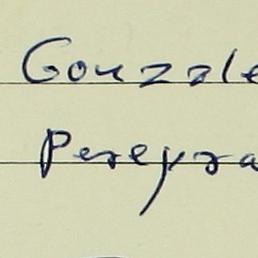 Gonzale
Pereyra